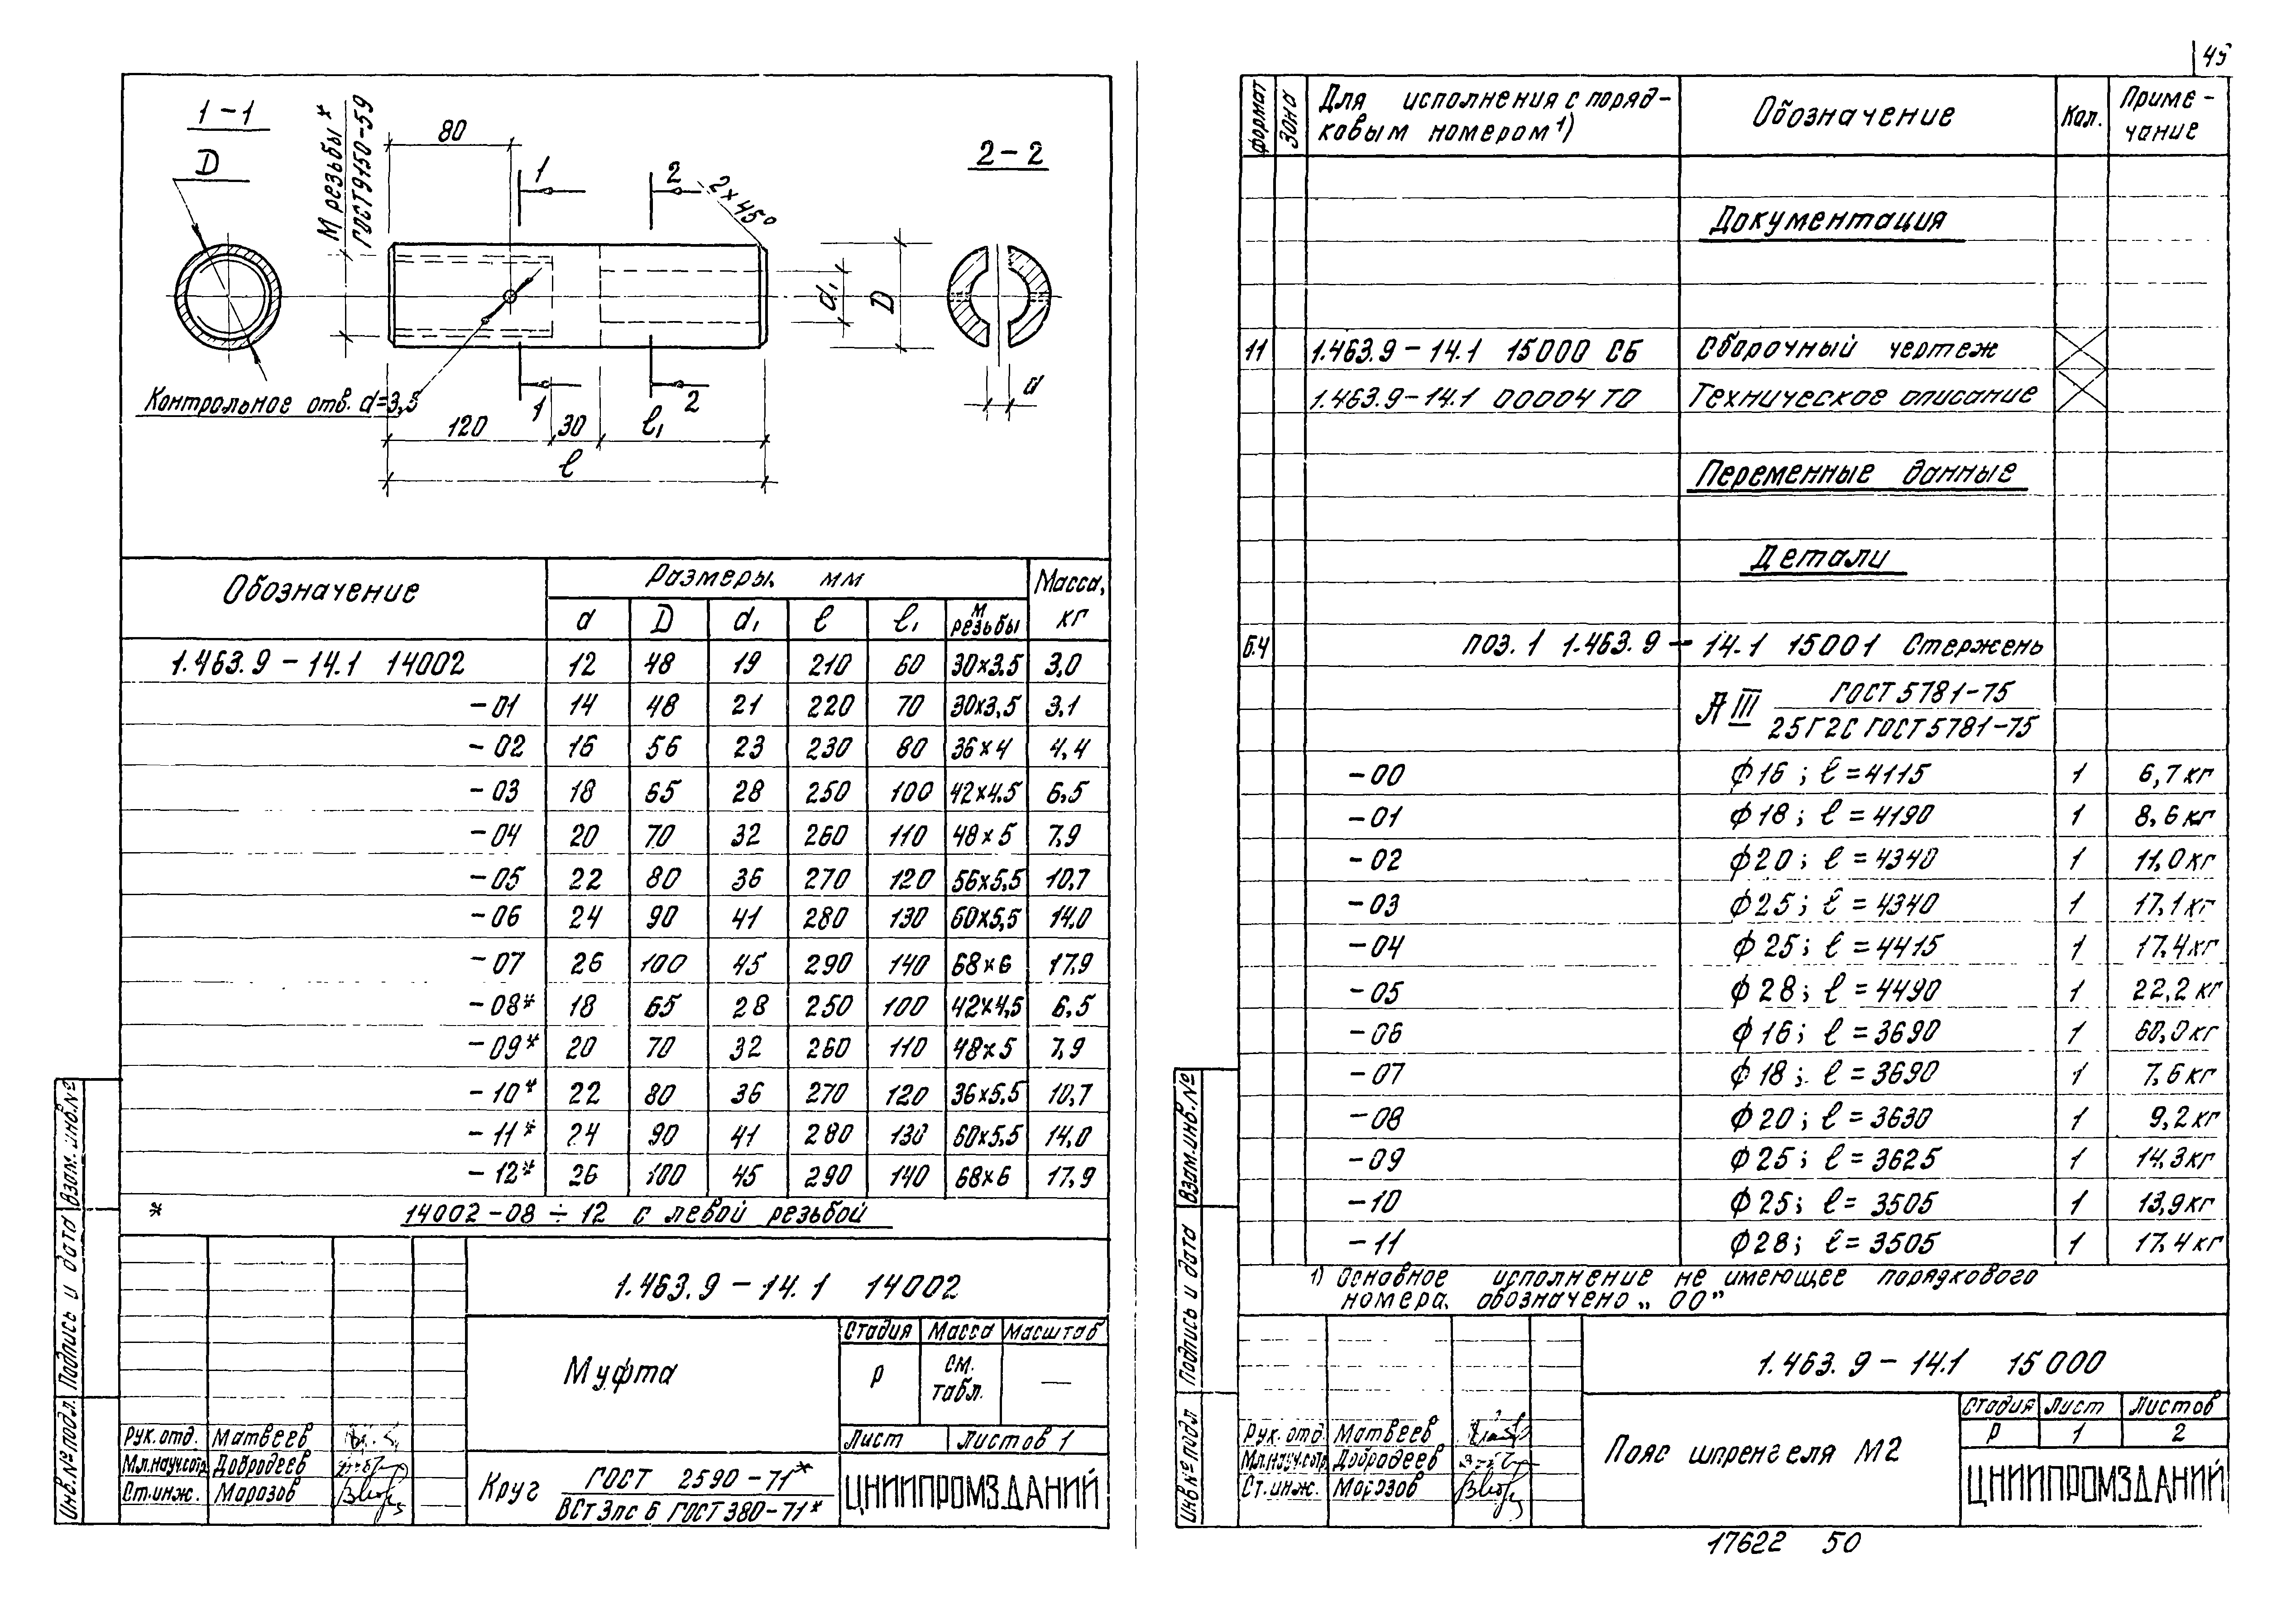 45
1-1
D
М резьбы*
ГОСТ 9150-59
80
1
2
2×45°
2-2
d₁
D
d
Контрольное отв. d=3,5
1
2
120
30
ℓ₁
ℓ
Обозначение
Размеры, мм
Масса, кг
d D d₁ ℓ ℓ₁ М резьбы
1.463.9-14.1 14002 12 48 19 210 60 30×3.5 3,0
-01 14 48 21 220 70 30×3,5 3.1
-02 16 56 23 230 80 36×4 4,4
-03 18 65 28 250 100 42×4.5 6,5
-04 20 70 32 260 110 48×5 7,9
-05 22 80 36 270 120 56×5,5 10,7
-06 24 90 41 280 130 60×5,5 14,0
-07 26 100 45 290 140 68×6 17,9
-08* 18 65 28 250 100 42×4,5 6,5
-09* 20 70 32 260 110 48×5 7,9
-10* 22 80 36 270 120 36×5,5 10,7
-11* 24 90 41 280 130 60×5,5 14,0
-12* 26 100 45 290 140 68×6 17,9
* 14002-08 ÷ 12 с левой резьбой
1.463.9-14.1 14002
Муфта
Стадия Масса Масштаб
Р см. табл. —
Лист Листов 1
Рук. отд. Матвеев
Мл.науч.сотр. Добродеев
Ст. инж. Морозов
Круг ГОСТ 2590-71*
ВСт 3пс 6 ГОСТ 380-71*
ЦНИИПРОМЗДАНИЙ
Инв.№ подл. Подпись и дата Взам. инв.№
Формат
Зона
Для исполнения с поряд-
ковым номером¹)
Обозначение
Кол.
Приме-
чание
Документация
11 1.463.9-14.1 15000 СБ Сборочный чертеж
1.463.9-14.1 00004 ТО Техническое описание
Переменные данные
Детали
Б.4 поз. 1 1.463.9-14.1 15001 Стержень
А III ГОСТ 5781-75
25Г2С ГОСТ 5781-75
-00 ф16; ℓ=4115 1 6,7кг
-01 ф18; ℓ=4190 1 8,6кг
-02 ф20; ℓ=4340 1 11,0кг
-03 ф25; ℓ=4340 1 17,1кг
-04 ф25; ℓ=4415 1 17,4кг
-05 ф28; ℓ=4490 1 22,2кг
-06 ф16; ℓ=3690 1 60,0кг
-07 ф18; ℓ=3690 1 7,6кг
-08 ф20; ℓ=3630 1 9,2кг
-09 ф25; ℓ=3625 1 14,3кг
-10 ф25; ℓ=3505 1 13,9кг
-11 ф28; ℓ=3505 1 17,4кг
1) Основное исполнение не имеющее порядкового
номера, обозначено „00"
1.463.9-14.1 15000
Пояс шпренгеля М2
Стадия Лист Листов
Р 1 2
Рук. отд. Матвеев
Мл.науч.сотр. Добродеев
Ст. инж. Морозов
ЦНИИПРОМЗДАНИЙ
Инв.№ подл Подпись и дата Взам.инв.№
17622 50